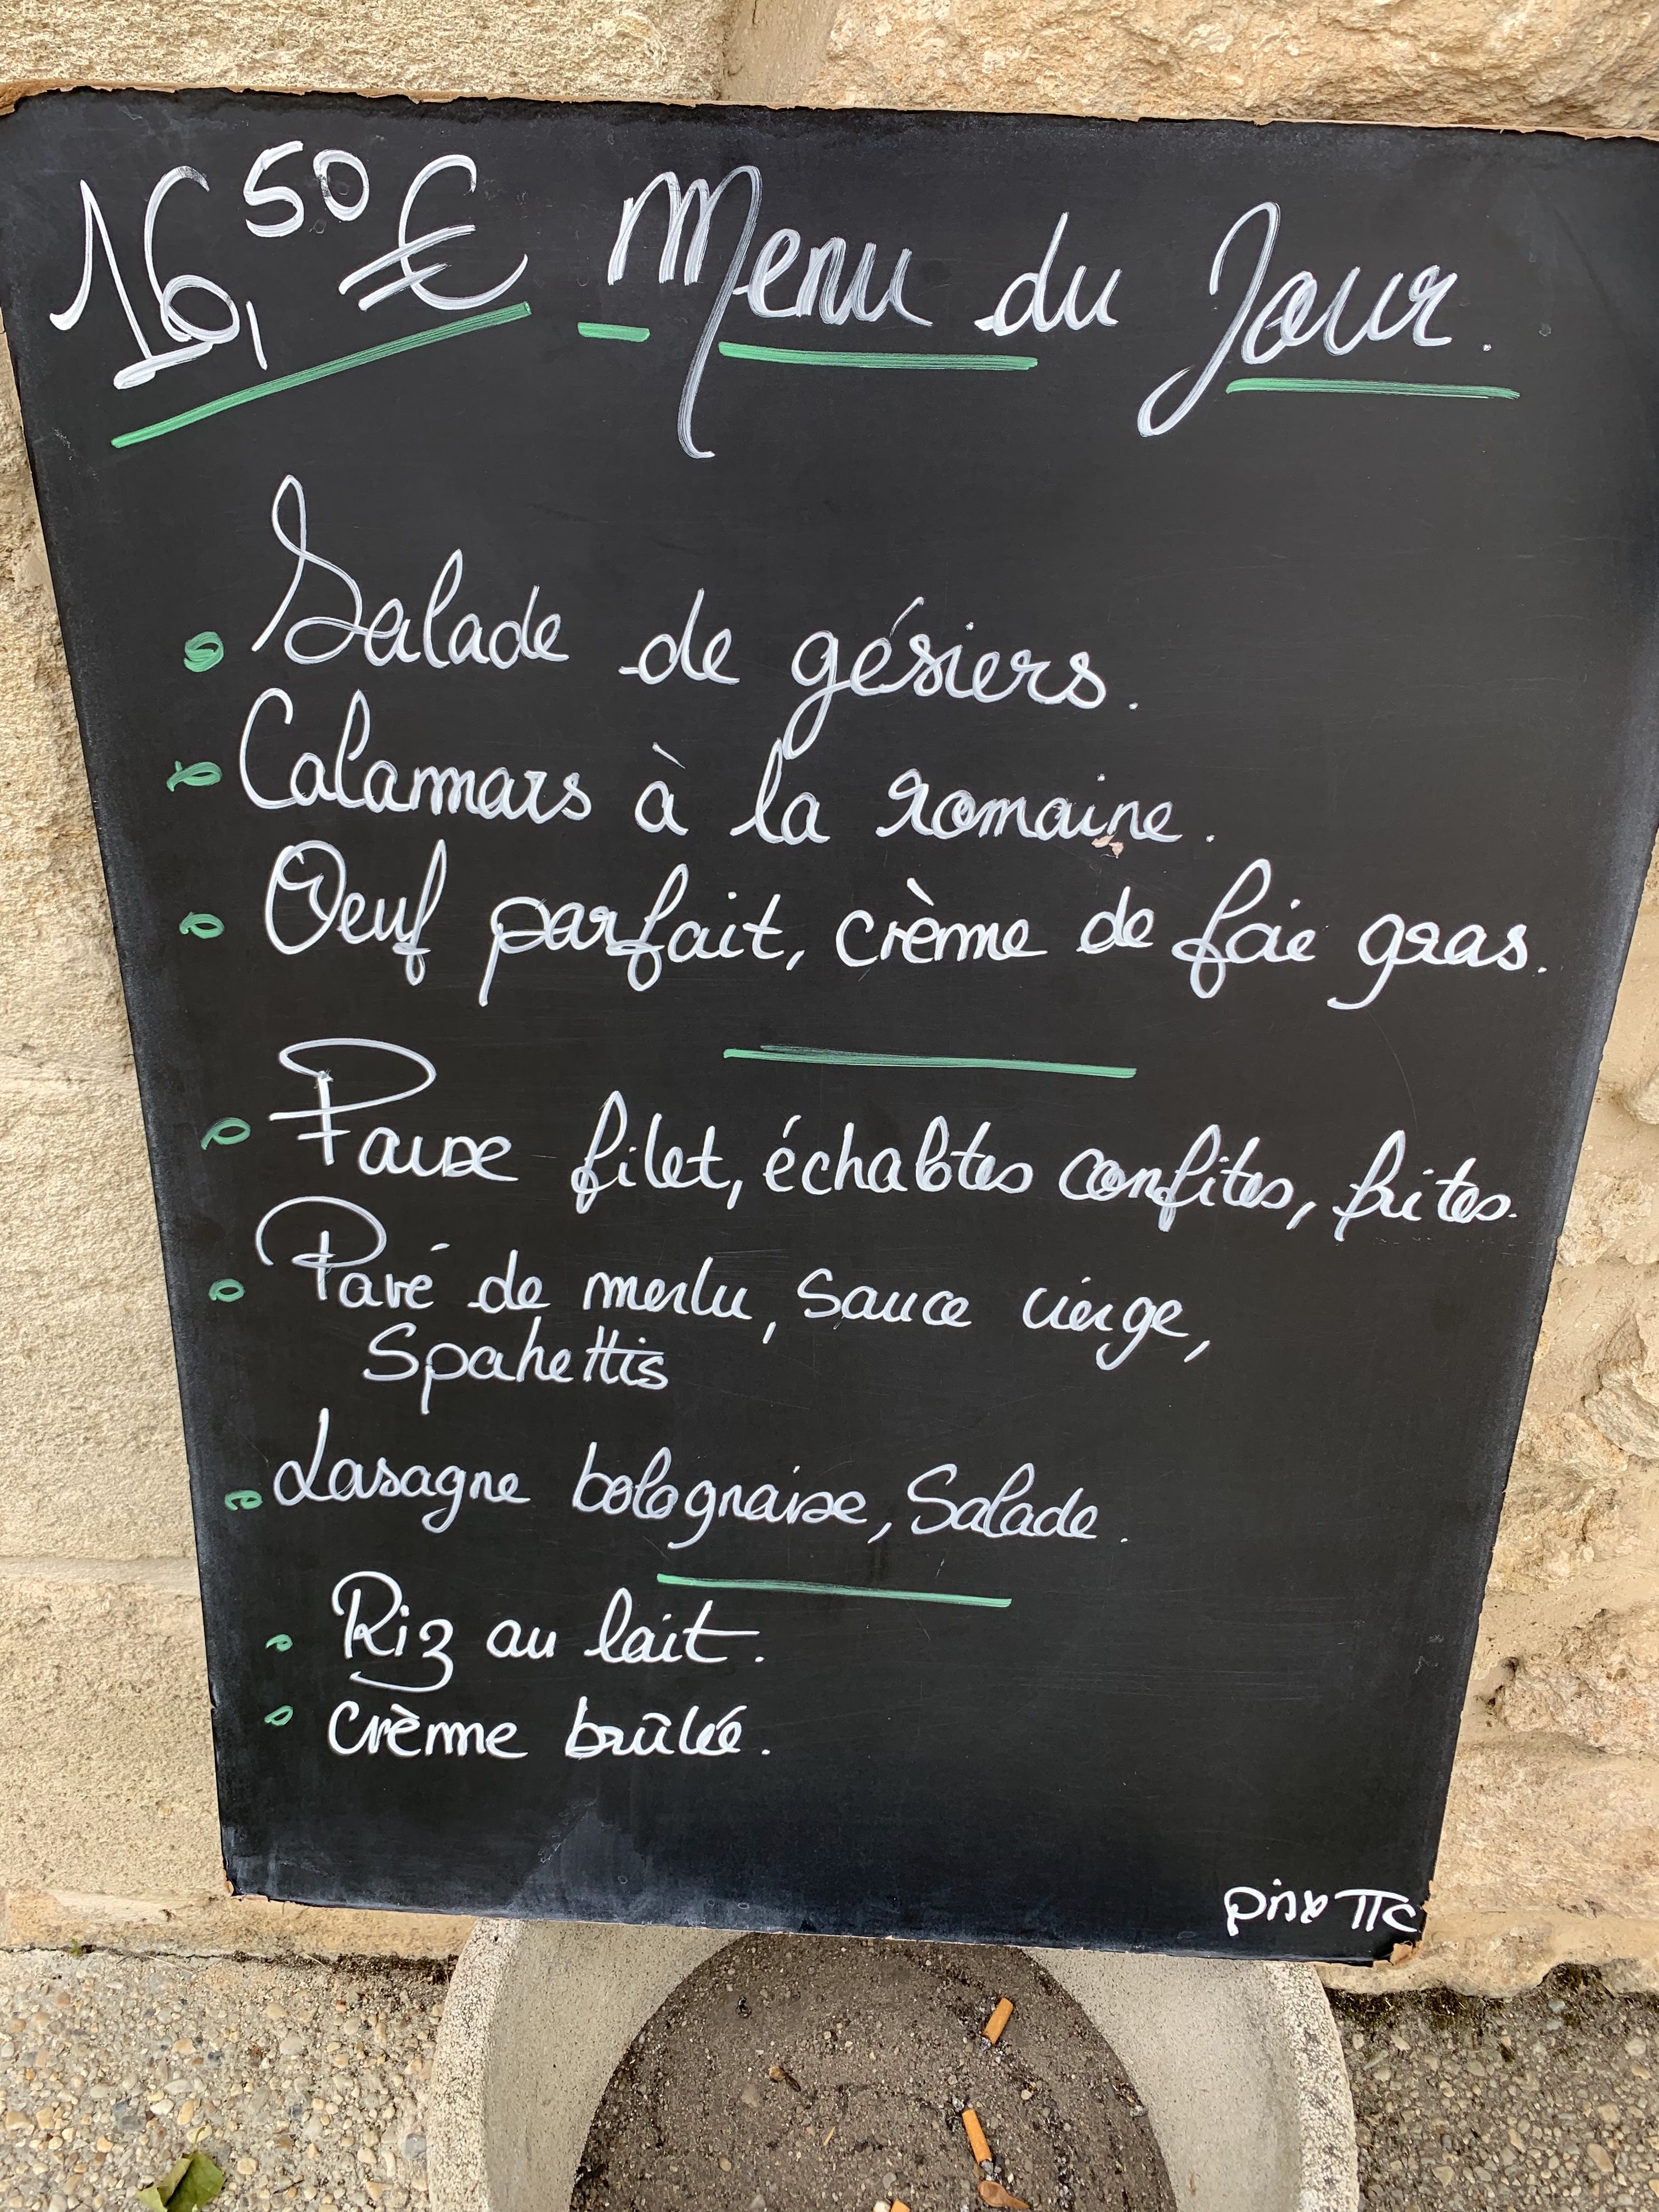 16,50 € Menu du Jour.
Salade de gésiers.
Calamars à la romaine.
Oeuf parfait, crème de foie gras.
Faux filet, échalotes confites, frites.
Pavé de merlu, sauce vierge,
Spahettis
Lasagne bolognaise, Salade.
Riz au lait.
Crème brûlée.
prix TTC